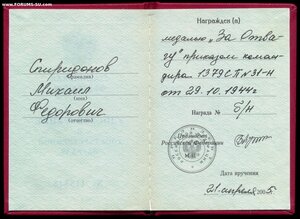 www.FORUMS-SU.com
Спиридонов
(фамилия)
Михаил
(имя)
Федорович
(отчество)
Награжден (а)
медалью „За Отва-
гу" приказом коман-
дира 1379 СП №31-Н
от 29.10.1944г
Награда № Б/Н
Президент
Российской Федерации
М.П.
Дата вручения
21 апреля 2005 г.